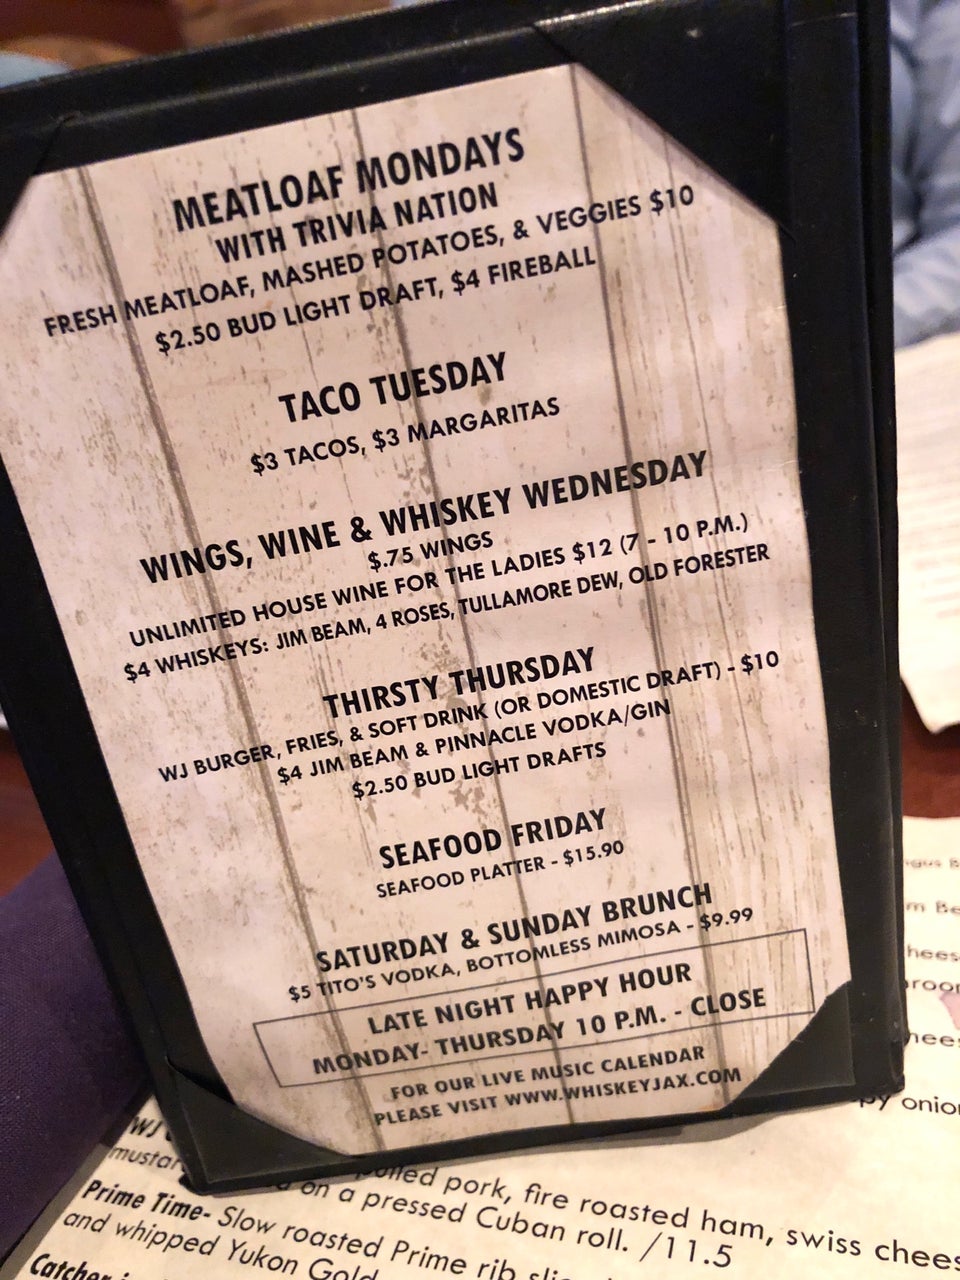 MEATLOAF MONDAYS
WITH TRIVIA NATION
FRESH MEATLOAF, MASHED POTATOES, & VEGGIES $10
$2.50 BUD LIGHT DRAFT, $4 FIREBALL
TACO TUESDAY
$3 TACOS, $3 MARGARITAS
WINGS, WINE & WHISKEY WEDNESDAY
$.75 WINGS
UNLIMITED HOUSE WINE FOR THE LADIES $12 (7 - 10 P.M.)
$4 WHISKEYS: JIM BEAM, 4 ROSES, TULLAMORE DEW, OLD FORESTER
THIRSTY THURSDAY
WJ BURGER, FRIES, & SOFT DRINK (OR DOMESTIC DRAFT) - $10
$4 JIM BEAM & PINNACLE VODKA/GIN
$2.50 BUD LIGHT DRAFTS
SEAFOOD FRIDAY
SEAFOOD PLATTER - $15.90
SATURDAY & SUNDAY BRUNCH
$5 TITO'S VODKA, BOTTOMLESS MIMOSA - $9.99
LATE NIGHT HAPPY HOUR
MONDAY- THURSDAY 10 P.M. - CLOSE
FOR OUR LIVE MUSIC CALENDAR
PLEASE VISIT WWW.WHISKEYJAX.COM
WJ
pork, fire roasted ham, swiss chees
mustar on a pressed Cuban roll. /11.5
Prime Time- Slow roasted Prime rib
and whipped Yukon Gold